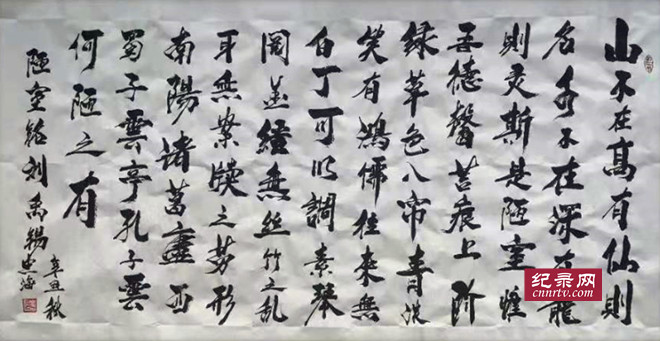 山不在高有仙則
名水不在深有龍
則灵斯是陋室惟
吾德馨苔痕上阶
绿草色入帘青谈
笑有鴻儒往来無
白丁可以調素琴
閱金經無丝竹之乱
耳無案牍之劳形
南陽诸葛廬西
蜀子雲亭孔子雲
何陋之有
陋室铭刘禹锡
辛丑秋
纪录网
cnnrtv.com